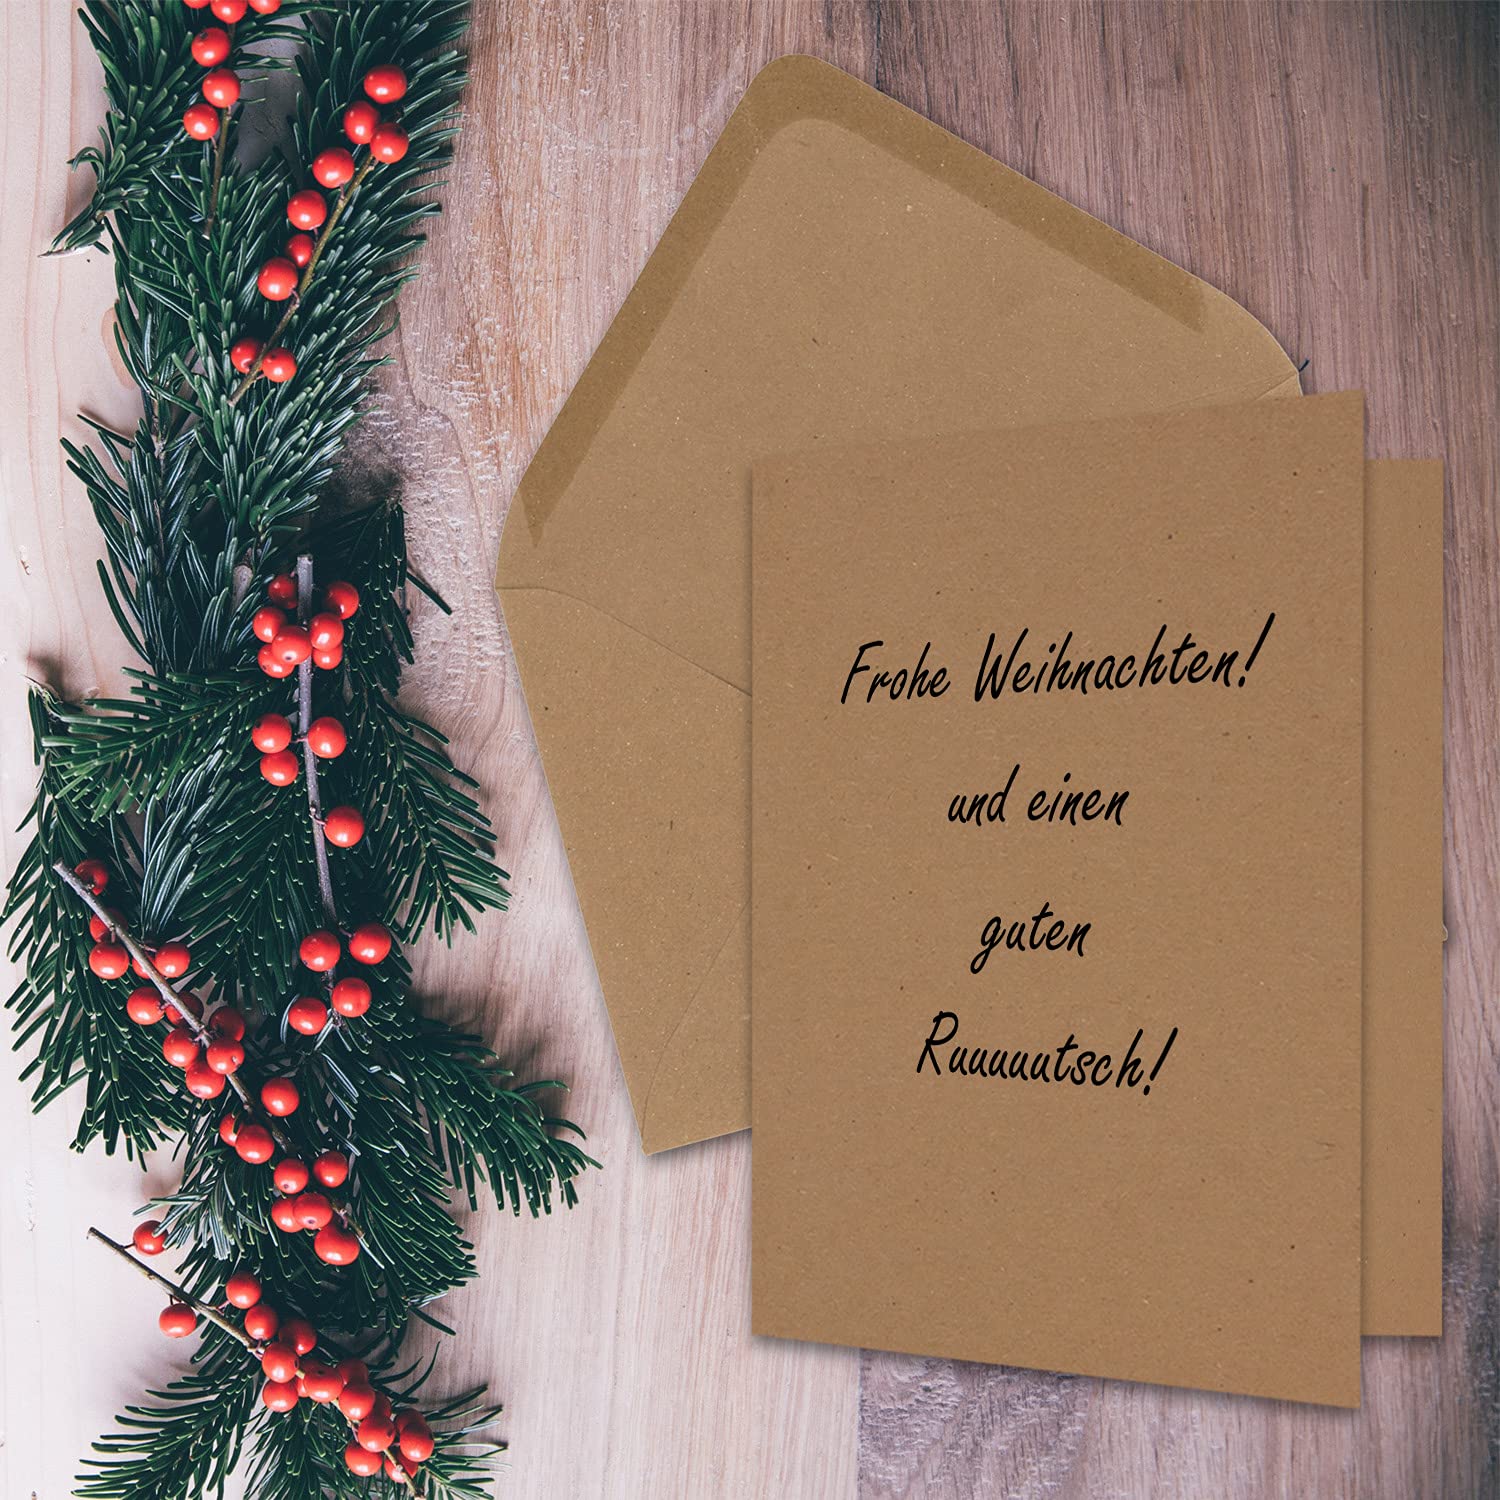 Frohe Weihnachten!
und einen
guten
Ruuuuutsch!